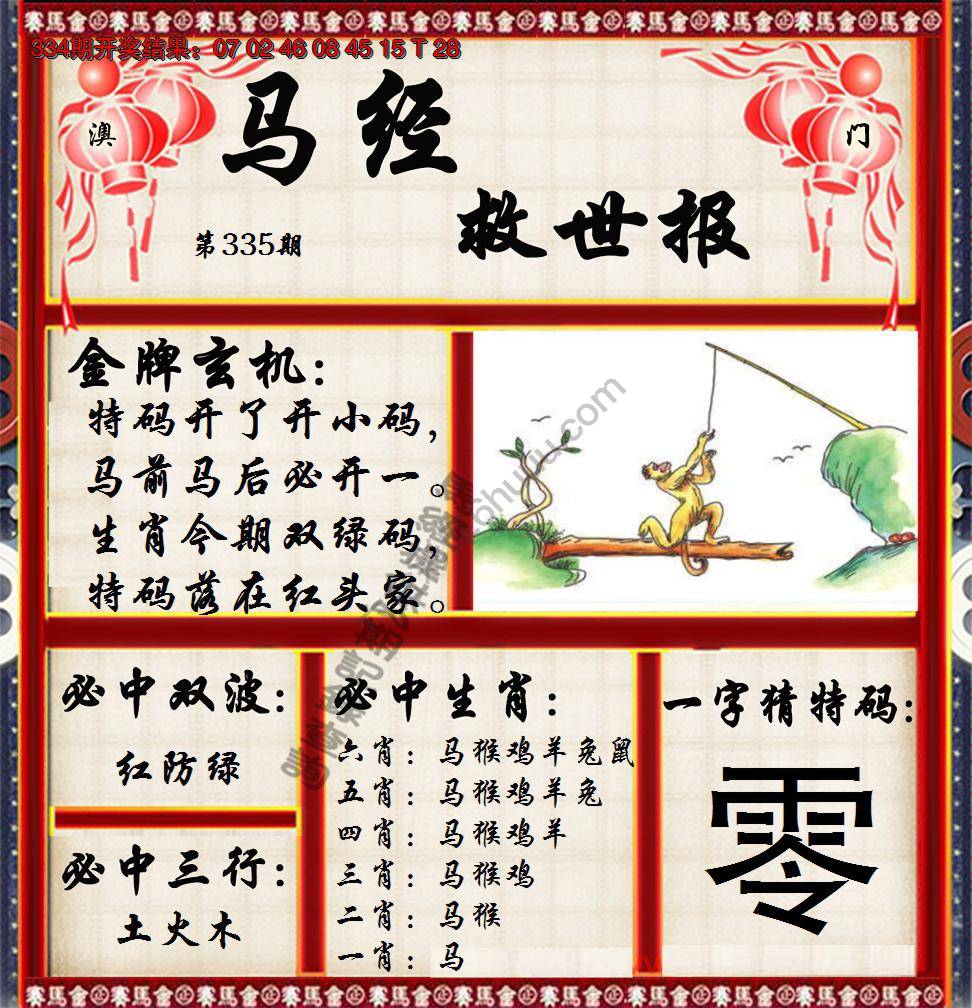 334期开奖结果：07 02 46 08 45 15 T 28
澳
门
马经
救世报
第335期
金牌玄机：
特码开了开小码，
马前马后必开一。
生肖今期双绿码，
特码落在红头家。
必中双波：
红防绿
必中三行：
土火木
必中生肖：
六肖：马猴鸡羊兔鼠
五肖：马猴鸡羊兔
四肖：马猴鸡羊
三肖：马猴鸡
二肖：马猴
一肖：马
一字猜特码：
零